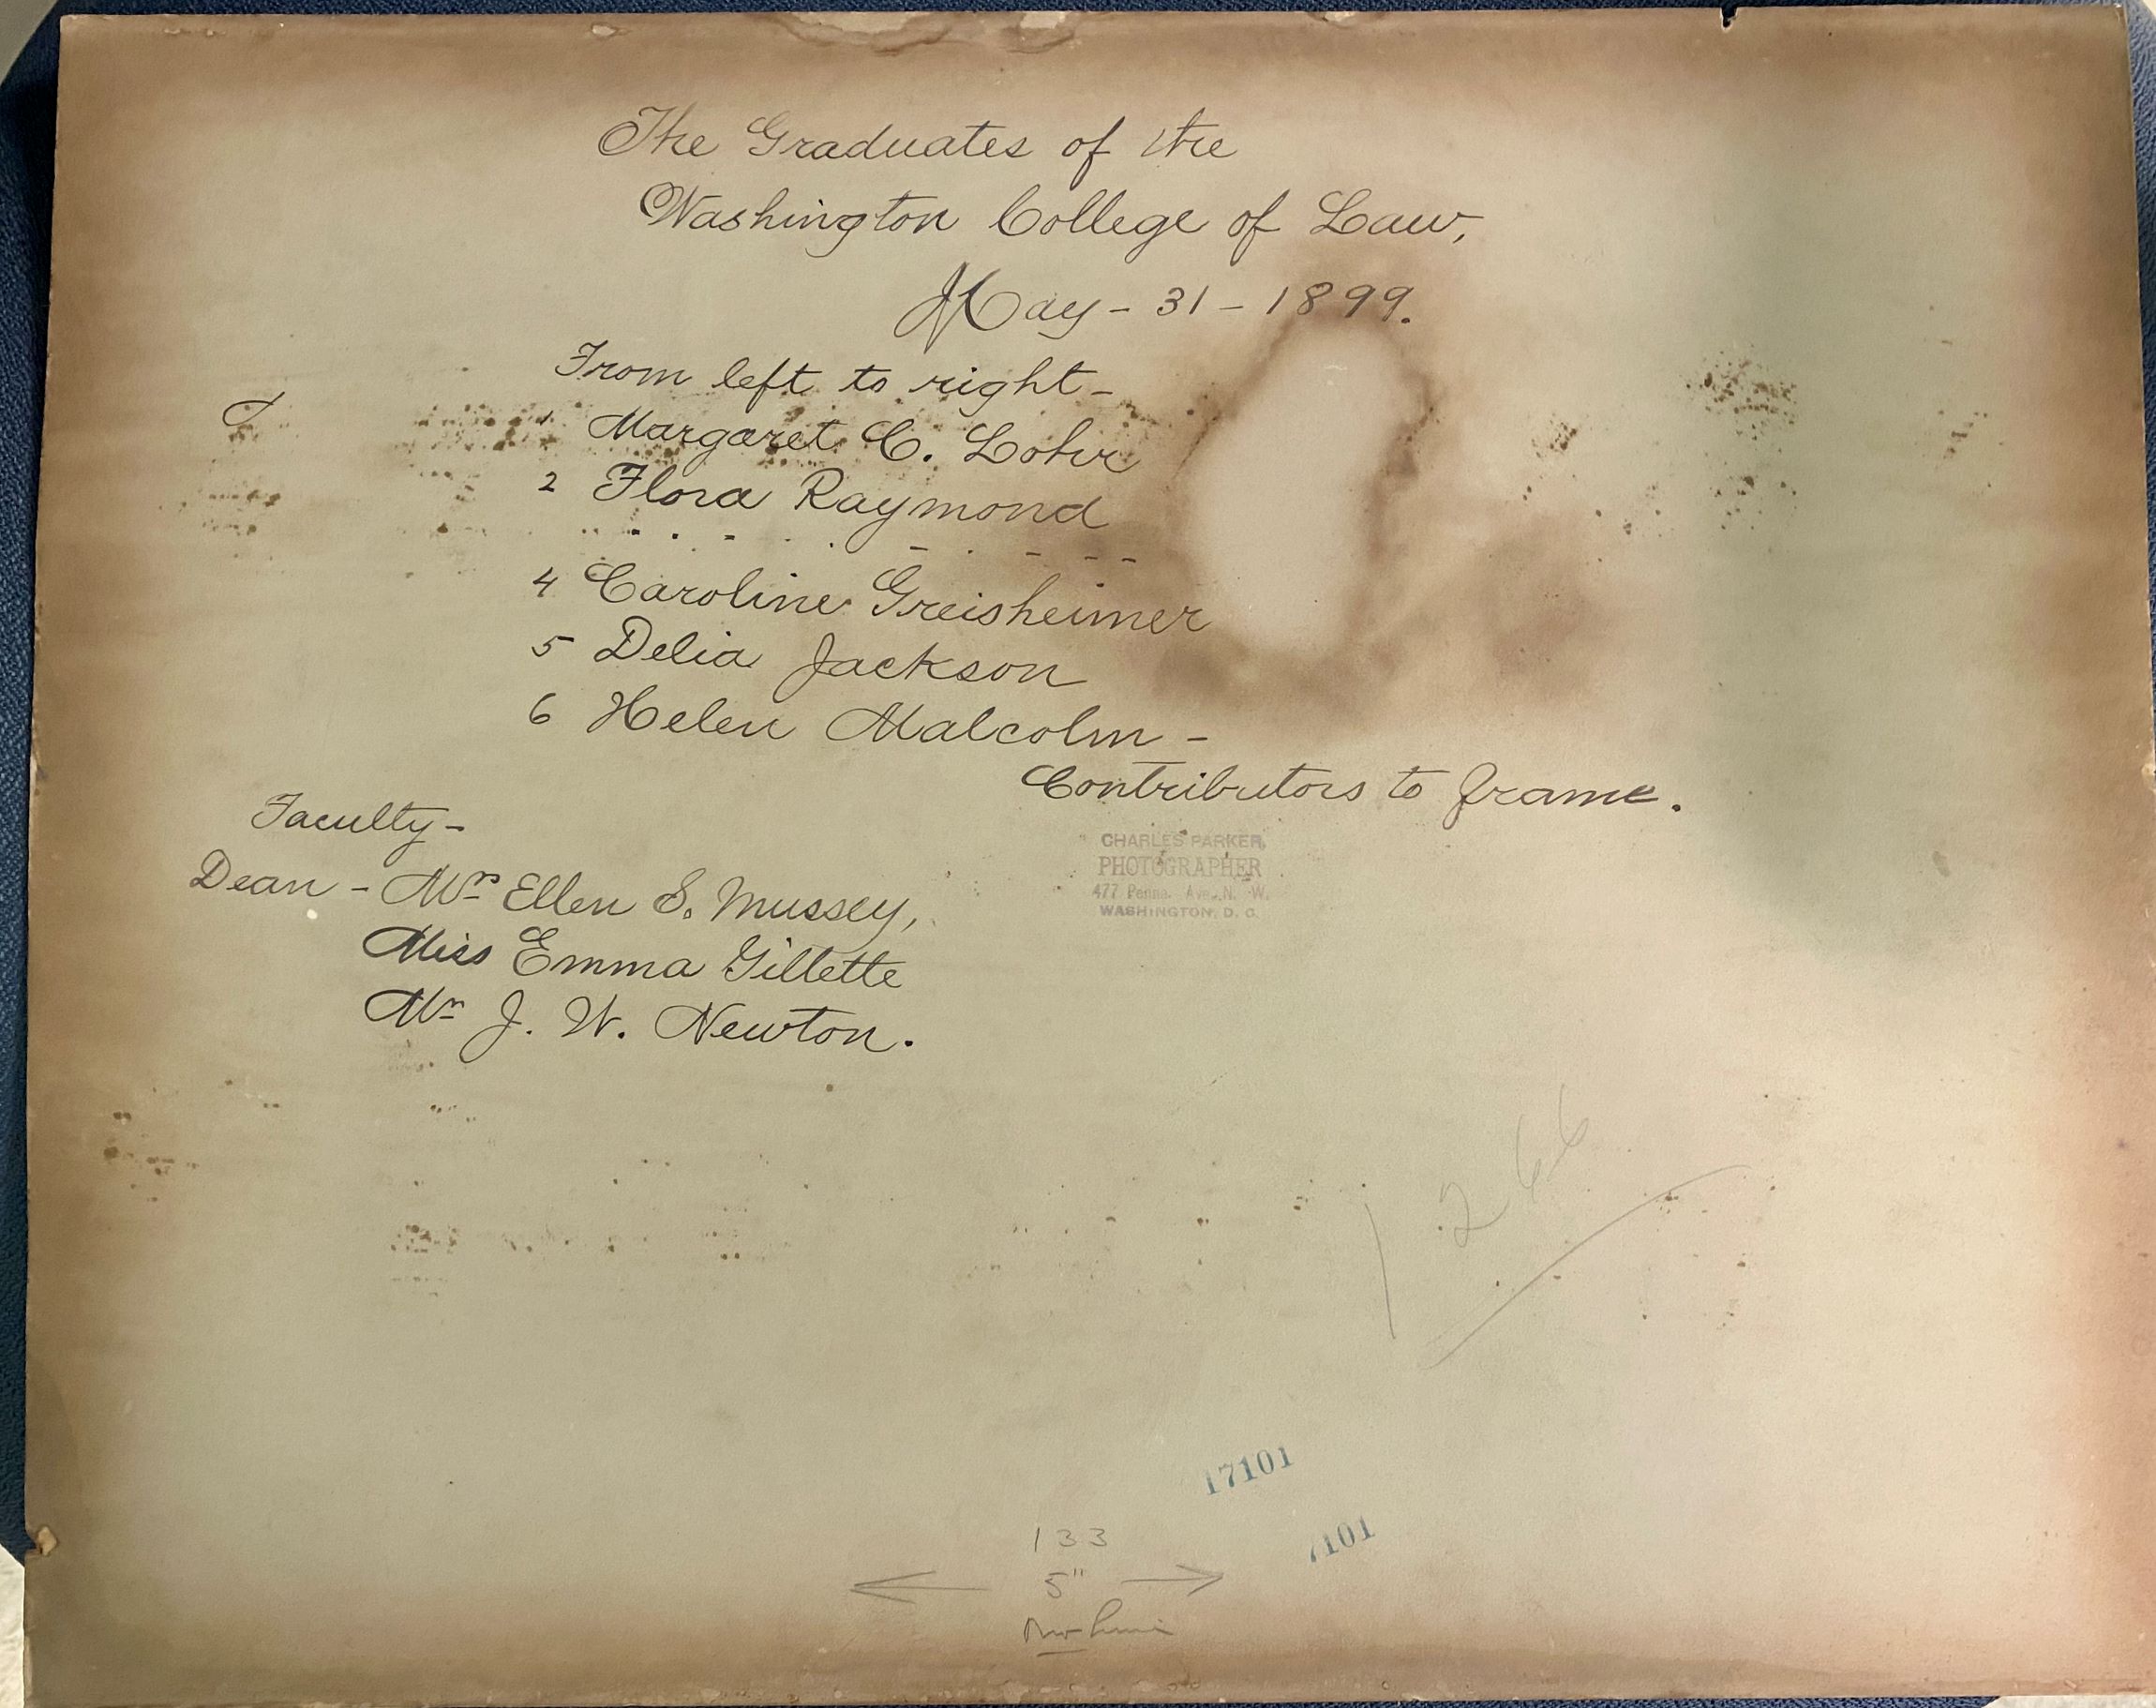 The Graduates of the
Washington College of Law,
May - 31 - 1899.
From left to right -
1 Margaret C. Lohr
2 Flora Raymond
4 Caroline Greisheimer
5 Delia Jackson
6 Helen Malcolm -
Contributors to frame.
Faculty -
Dean - Mrs Ellen S. Mussey,
Miss Emma Gillette
Mr J. W. Newton.
CHARLES PARKER,
PHOTOGRAPHER
477 Penna. Ave. N. W.
WASHINGTON, D. C.
1266
17101
7101
133
5"